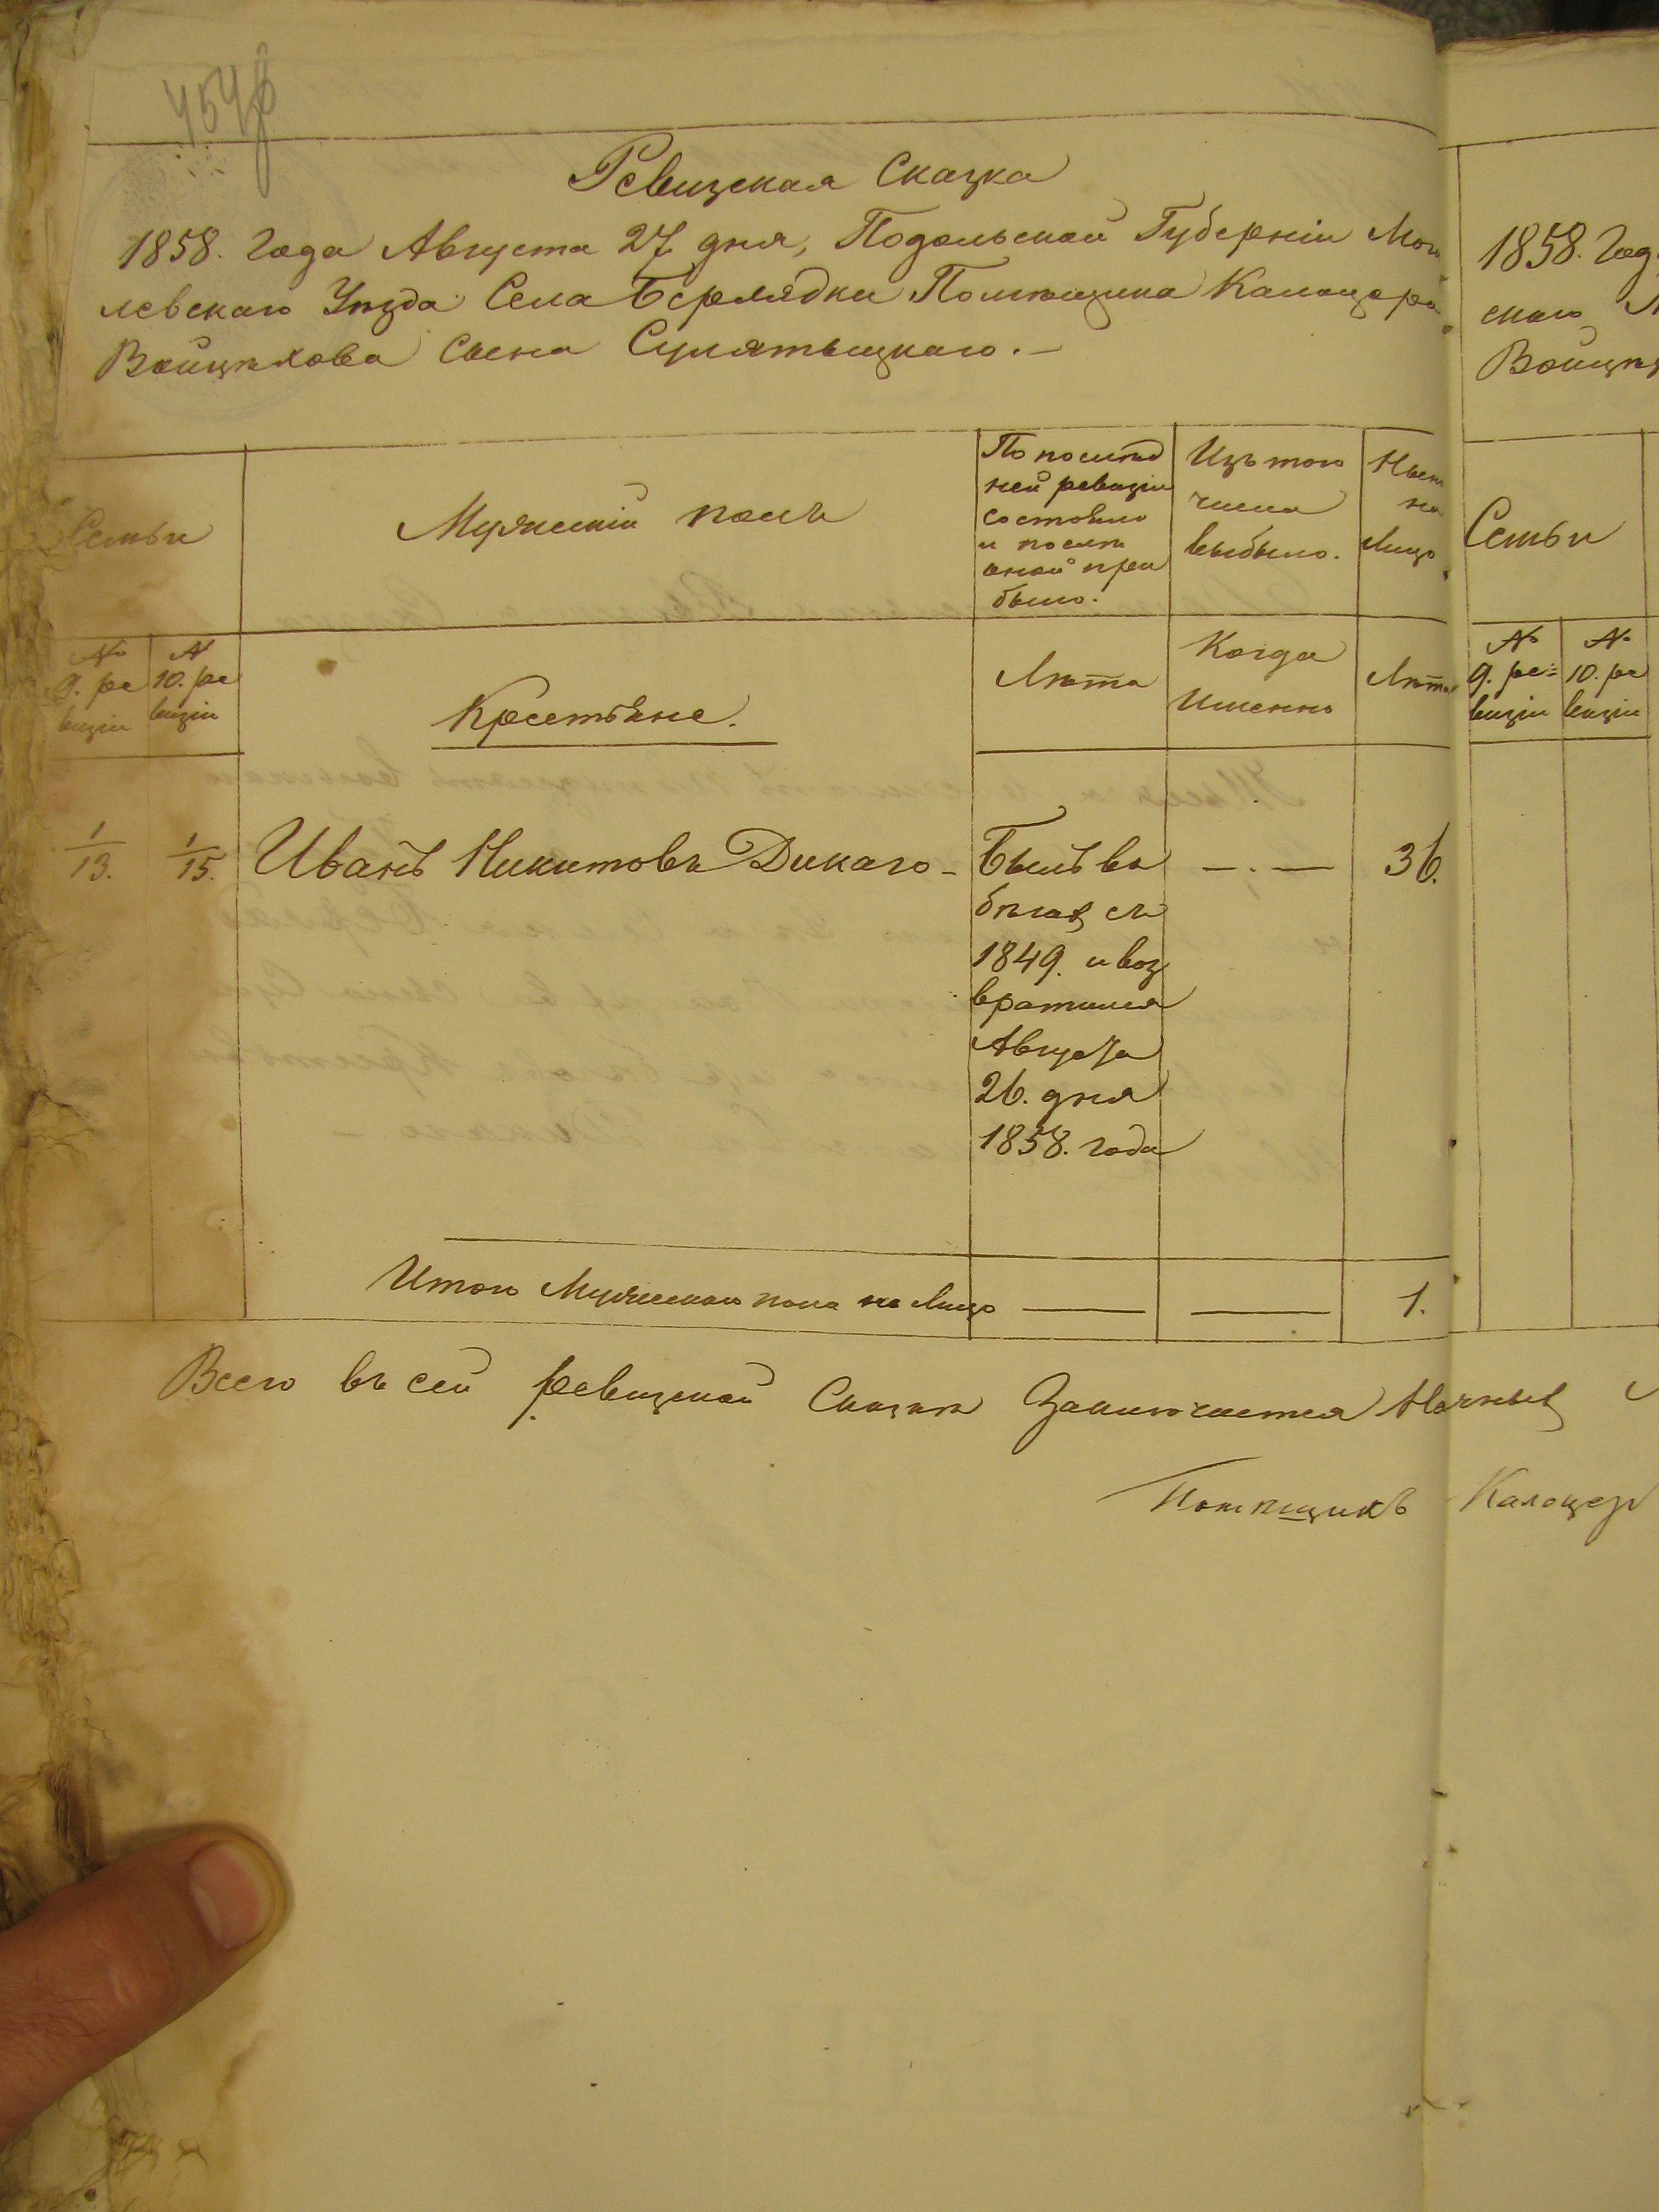 454
Ревизская Сказка
1858. Года Августа 27 дня, Подольской Губернiи Моги
левскаго Уѣзда Села Берлядки Помѣщика Калоцера
Войцѣхова Сына Сулятыцкаго.—
Семьи
Мужескiй полъ
По послѣд
ней ревизiи
состояло
и послѣ
оной при
было.
Изъ того
числа
выбыло.
Нынѣ
на
лицо
№
9. ре
визiи
№
10. ре
визiи
Крестьяне.
Лѣта
Когда
Именно
Лѣта
1/13.
1/15.
Иванъ Никитовъ Дикаго —
Былъ въ
бѣгахъ съ
1849. и воз
вратился
Августа
26. дня
1858. года
— . —
36.
Итого Мужескаго пола на лицо
—
—
1.
Всего въ сей ревизской Сказкѣ Заключается
Помѣщикъ Калоцер
1858. Год
скаго
Войцѣ
Семьи
№
9. ре=
визiи
№
10. ре
визiи